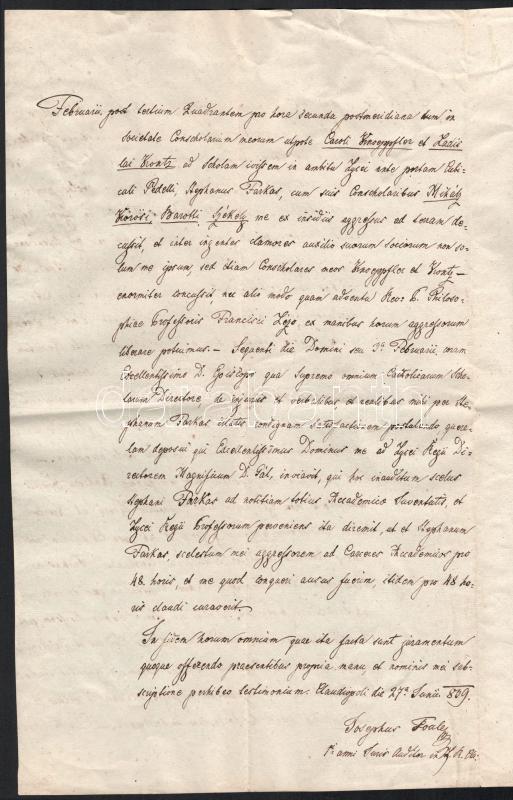 Februarii, post tertium Quadrantem pro hora secunda postmeridiana dum in
societate Conscholarium meorum utpote Caroli Knoepffler et Ladis-
lai Krontz ad scholam ivissem in ambitu Lycei ante portam
cati Pedelli, Stephanus Farkas, cum suis Conscholaribus Mihály
Körösi, Barotti, Székely me ex insidiis aggressus ad terram de-
cussit, et inter ingentes clamores auxilio suorum sociorum non so-
lum me ipsum, sed etiam Conscholares meos Knoepffler et Krontz
enormiter concussit, nec alio modo quam adventu Rev: P. Philoso-
phiae Professoris Francisci ex manibus horum aggressorum
liberare potuimus. – Sequenti die Domini seu 3a Februarii, coram
Excellentissimo D. qua Supremo omnium Catholicarum Scho-
larum Directore de injuriis et verbalibus et realibus mihi per Ste-
phanum Farkas illatis condignam satisfactionem postulando, quere-
lam deposui qui Excellentissimus Dominus me ad Lycei Regii Di-
rectorem Magnificum D. Gál, inviavit, qui hoc inauditum scelus
Stephani Farkas ad notitiam totius Accademicae Juventutis, et
Lycei Regii Professorum perveniens ita diremit, ut et Stephanum
Farkas, scelestum mei aggressorem ad Carceres Accademicos pro
48 horis, et me quod conqueri ausus fuerim, itidem pro 48 ho-
ris claudi curaverit.
In fidem horum omnium quae ita facta sunt juramentum
quoque offerendo praesentibus propria manu, et nominis mei sub-
scriptione perhibeo testimonium. Claudiopoli die 27a Junii 839.
Josephus
1i anni Juris Auditor in R.
darabanth